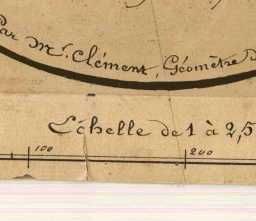 Par Mr. Clément, Géomètre
Echelle de 1 à 2,5
100 200